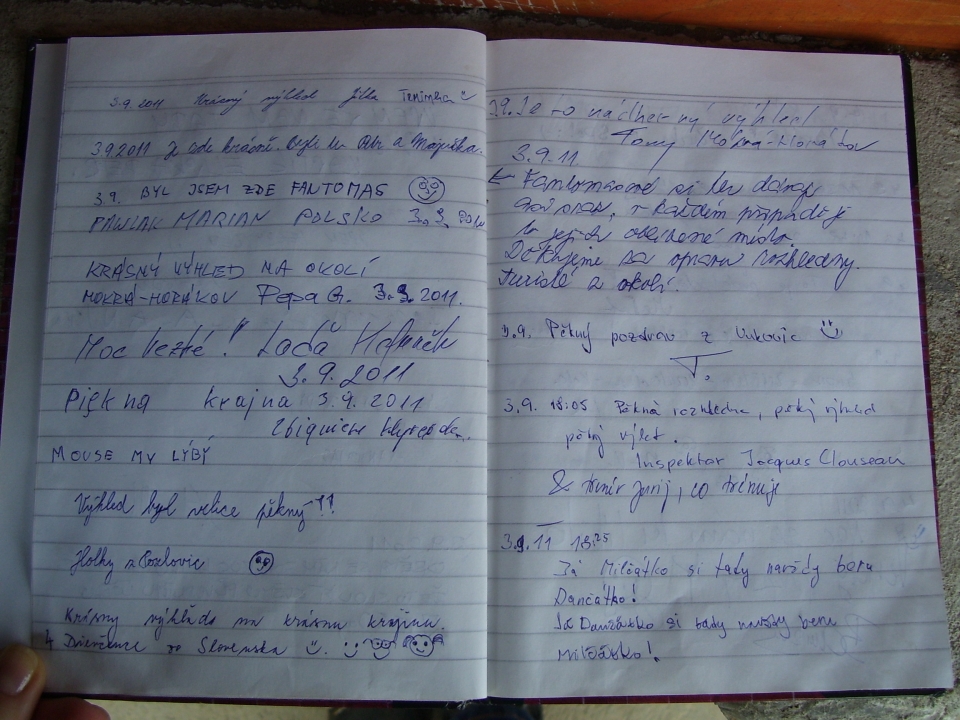 3.9.2011 Krásný výhled Jitka
3.9.2011 Je zde krásně. Byli tu a
3.9. BYL JSEM ZDE FANTOMAS
PAWLAK MARIAN POLSKO 3.9.2011
KRÁSNÝ VÝHLED NA OKOLÍ
MOKRÁ-HORÁKOV Pepa G. 3.9.2011.
Moc hezké! Laďa
3.9.2011
Piękna krajna 3.9.2011
Zbigniew
MOUSE MY LÝBÝ
Výhled byl velice pěkný!!
Holky z
Krásny výhľad na krásnu krajinu.
4 Dievčence zo Slovenska
3.9. Je to nádherný výhled
Tony Mokrá-Horákov
3.9.11
← Fantomasové si tu dávaj
sraz, v každém případě je
to jejich oblíbené místo.
Děkujeme za opravu rozhledny.
turisté z okolí.
3.9. Pěkný pozdrav z
T.
3.9. 18:05 Pěkná rozhledna, pěkný výhled
pěkný výlet.
Inspektor Jacques Clouseau
& trenér Jurij, co trénuje
3.9.11 18.25
Já Milčátko si tady navždy beru
Dančátko!
Já Dančátko si tady navždy beru
Milčátko!